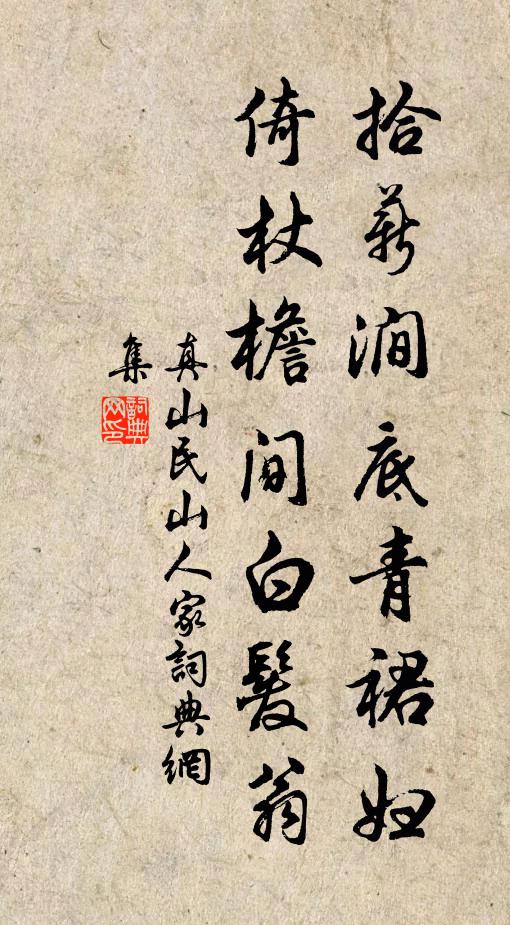 拾薪澗底青裙妇
倚杖檐间白髮翁
真山民山人家詞典網
集
詞典网印